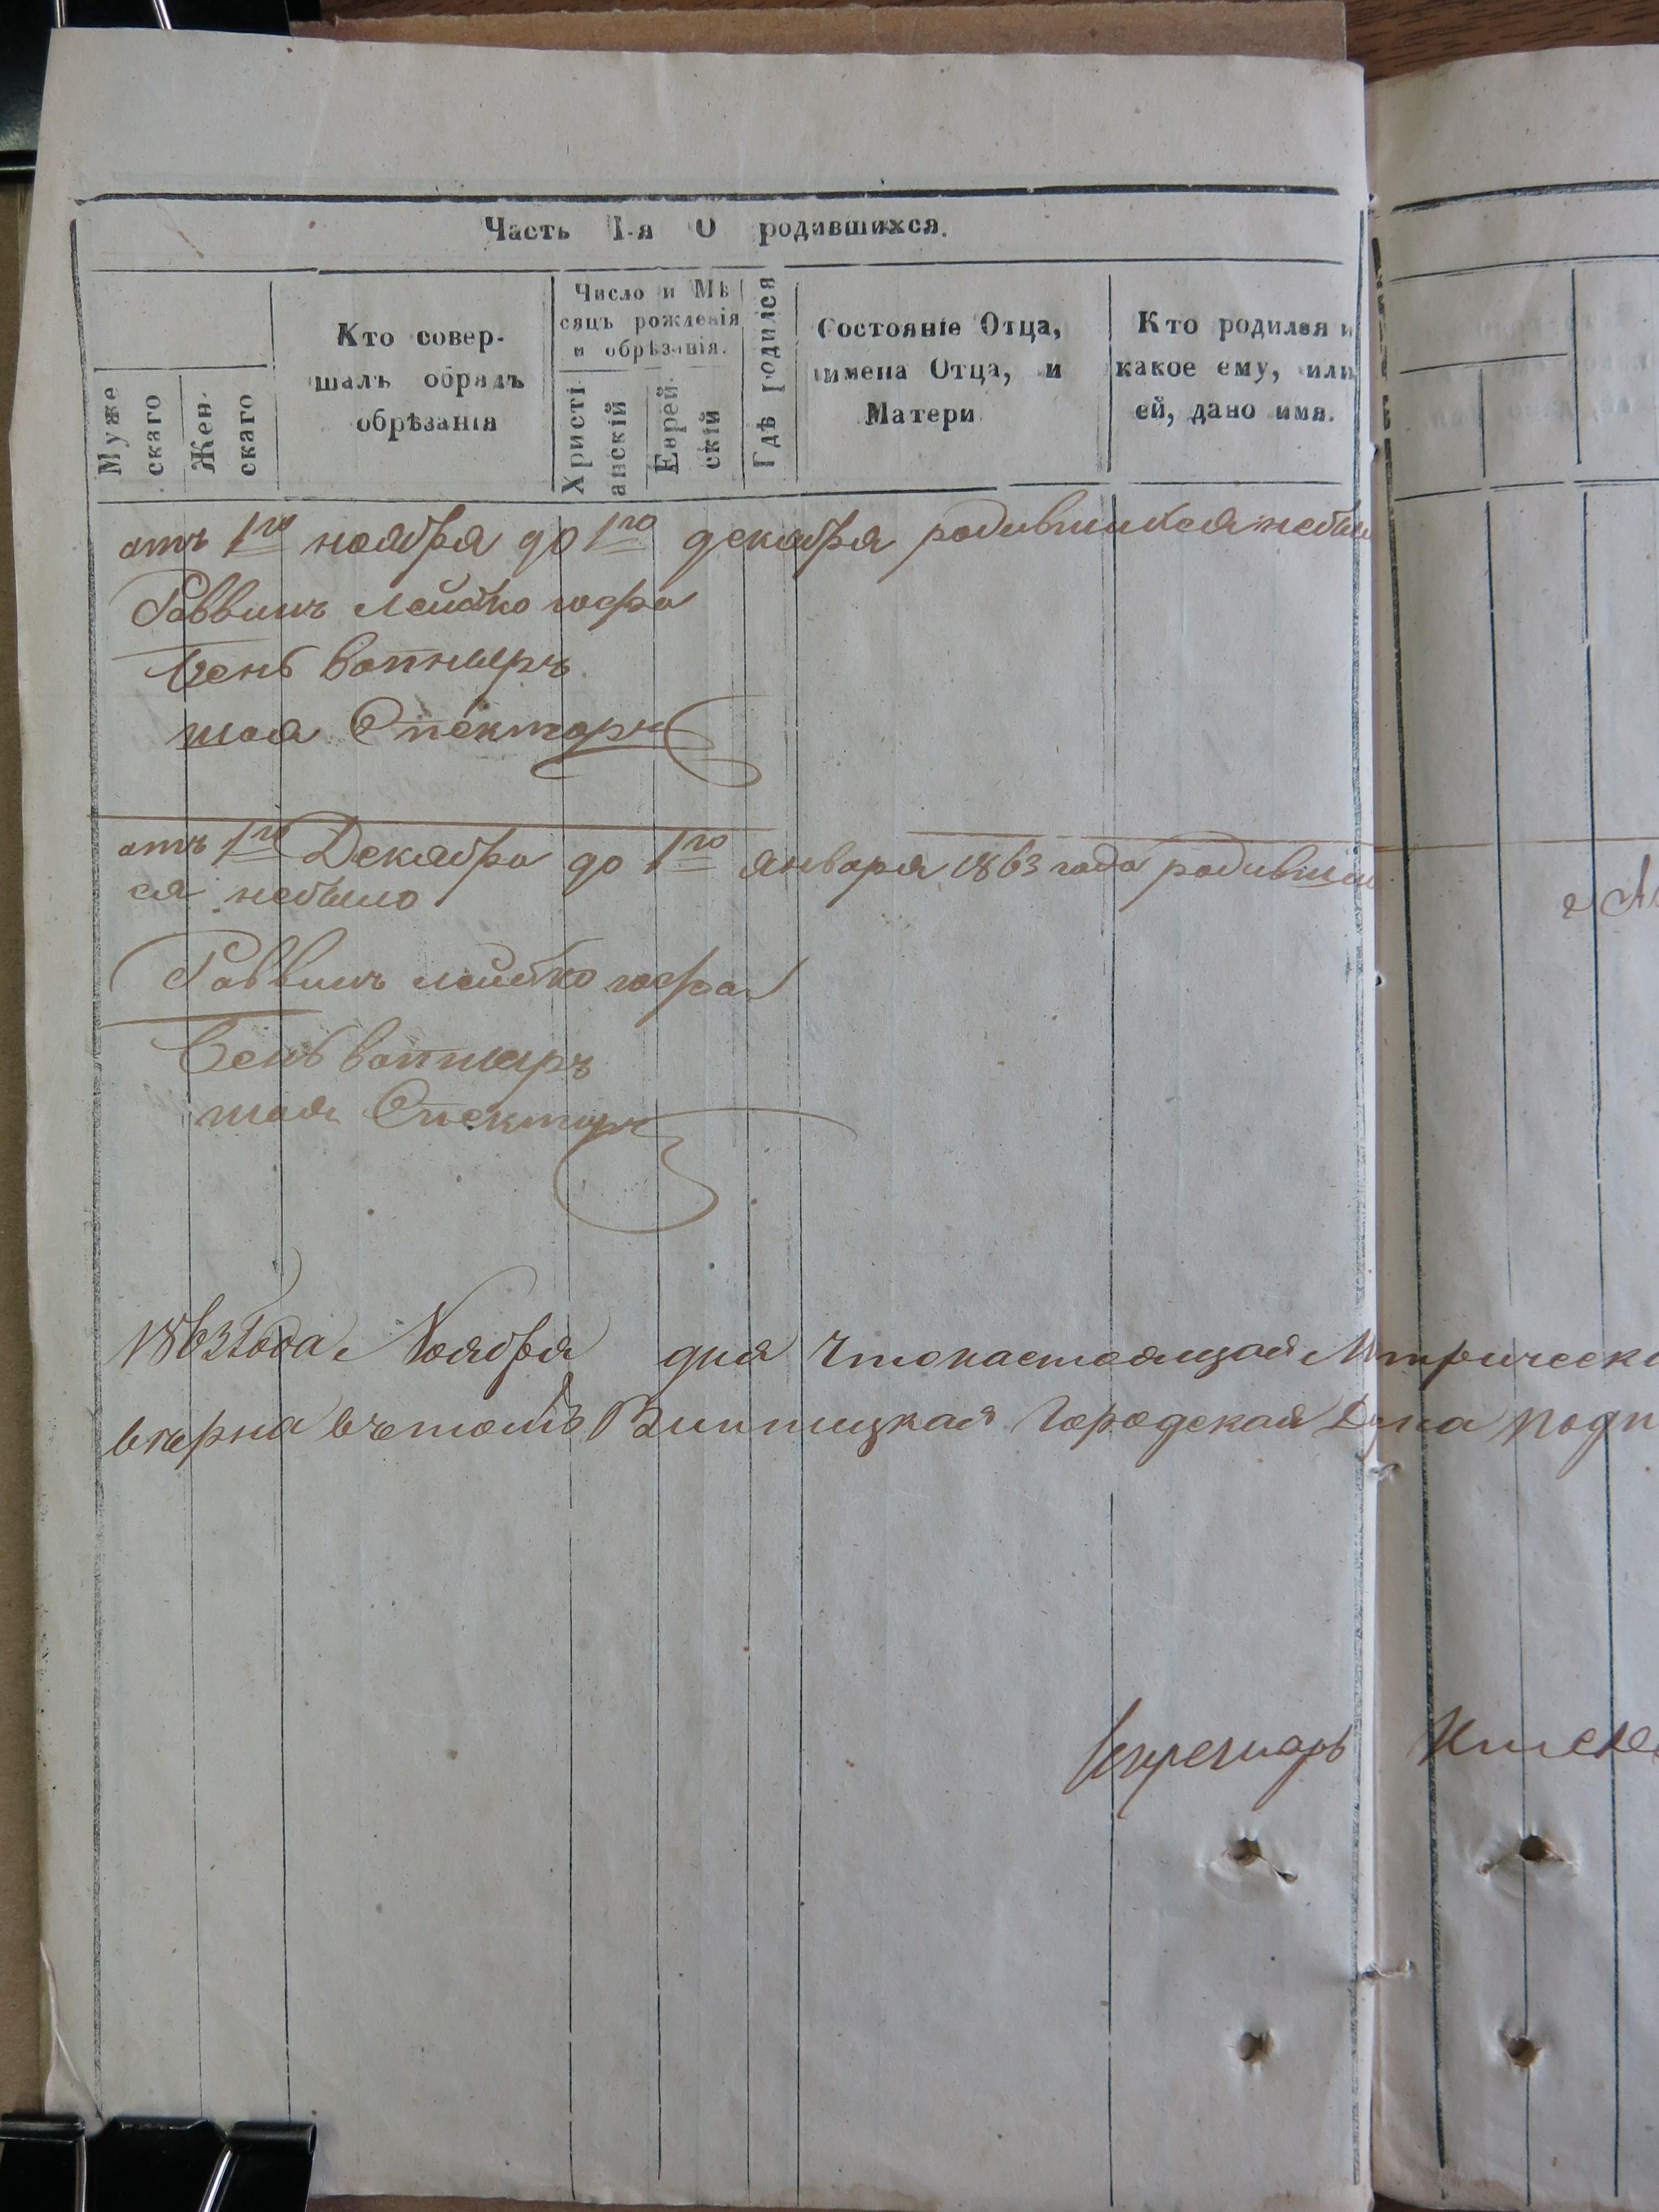 Часть I-я О родившихся.
Муже
скаго
Жен-
скаго
Кто совер-
шалъ обрядъ
обрѣзанія
Число и Мѣ
сяцъ рожденія
и обрѣзанія.
Христі
анскій
Еврей-
скій
Гдѣ родился
Состояніе Отца,
имена Отца, и
Матери
Кто родился и
какое ему, или
ей, дано имя.
отъ 1го ноября до 1го декабря родившихся небыло
Раввинъ Лейбко
шая Спекторъ
отъ 1го Декабря до 1го января 1863 года родивши
ся небыло
Раввинъ лейбко
шая Спекторъ
1863 Года Ноября дня Что настоящая
верна вътомъ Винницкая Городская Дума
Секретарь